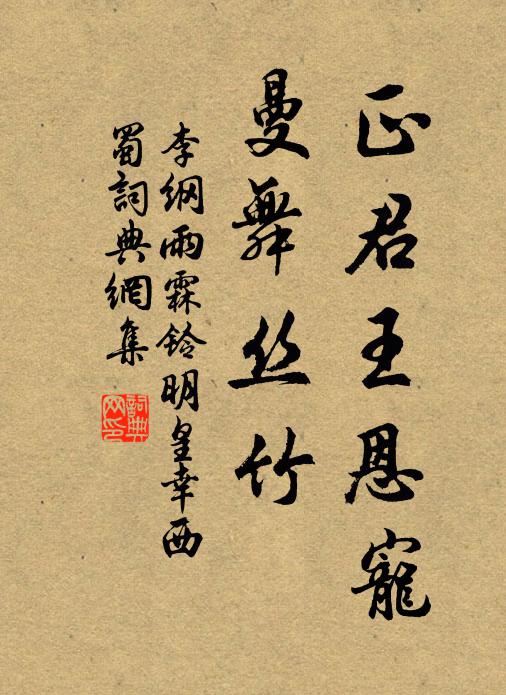 正君王恩寵
曼舞丝竹
李纲雨霖铃明皇幸西
蜀詞典網集
詞典网印